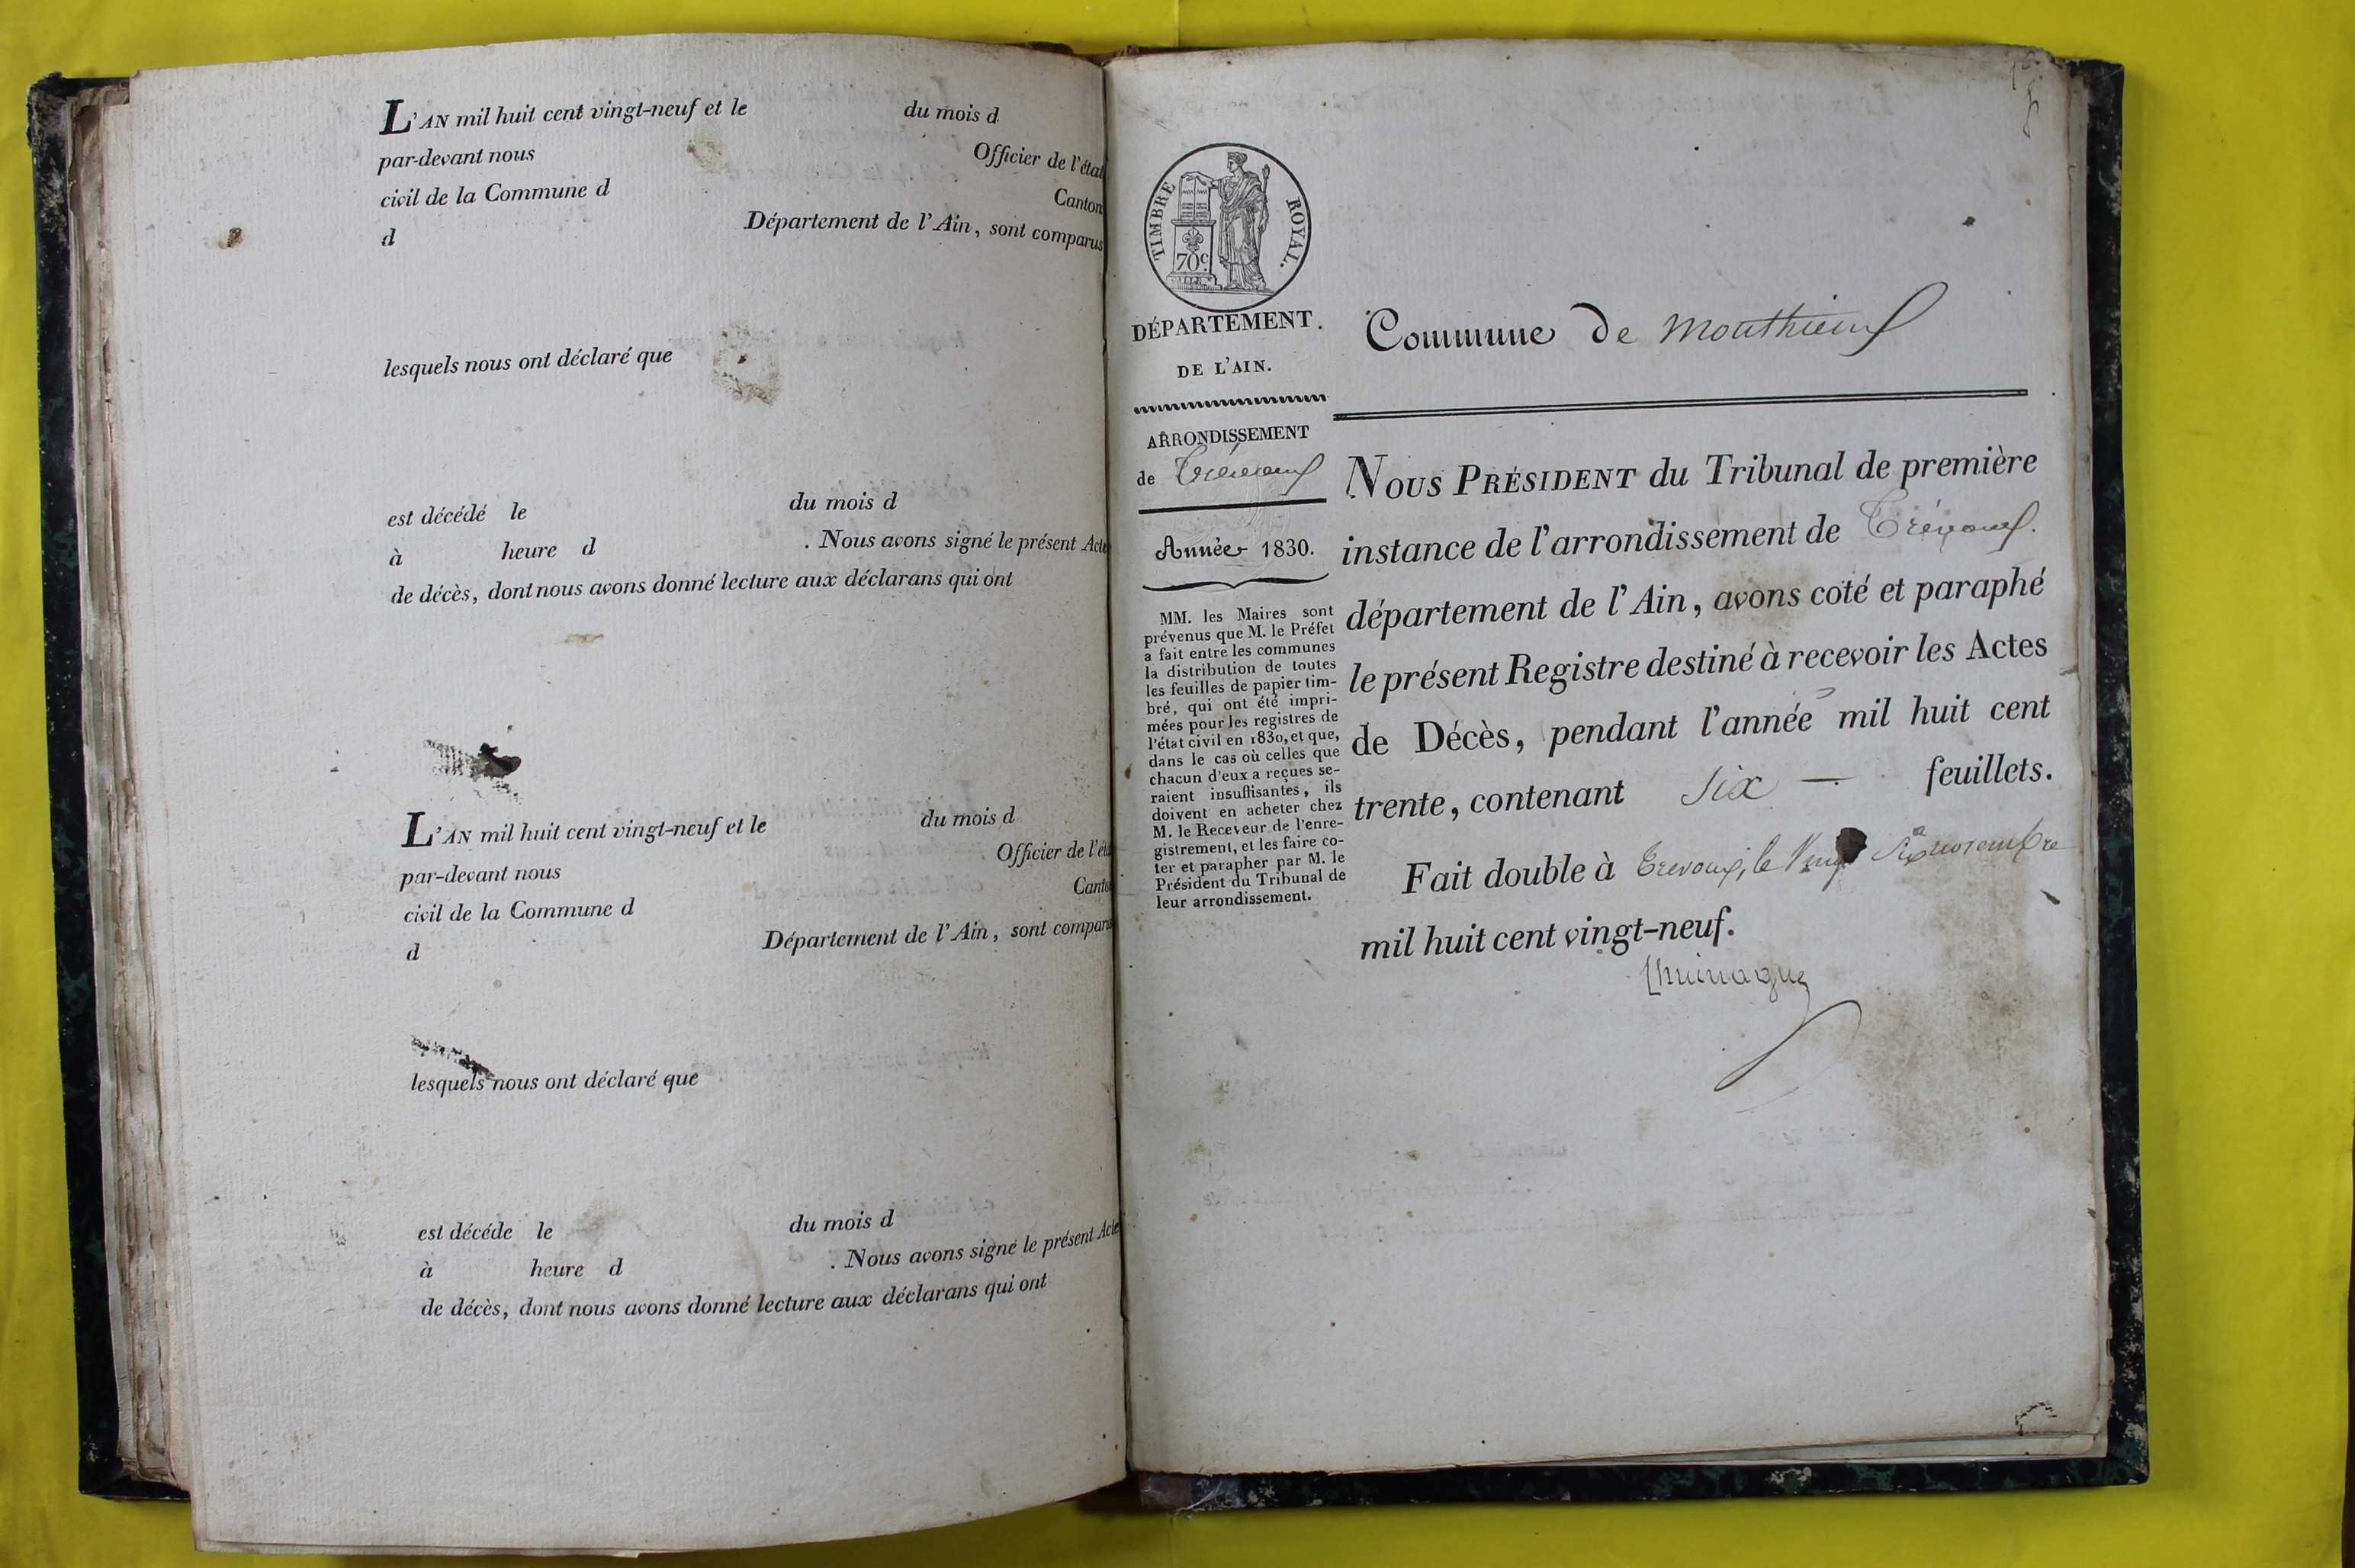 L'AN mil huit cent vingt-neuf et le du mois d
par-devant nous Officier de l'état
civil de la Commune d Canton
d Département de l'Ain, sont comparus
lesquels nous ont déclaré que
est décédé le du mois d
à heure d . Nous avons signé le présent Acte
de décès, dont nous avons donné lecture aux déclarans qui ont
L'AN mil huit cent vingt-neuf et le du mois d
par-devant nous Officier de l'éta
civil de la Commune d Canto
d Département de l'Ain, sont comparus
lesquels nous ont déclaré que
est décéde le du mois d
à heure d . Nous avons signé le présent Acte
de décès, dont nous avons donné lecture aux déclarans qui ont
TIMBRE ROYAL.
70c
DÉPARTEMENT.
DE L'AIN.
ARRONDISSEMENT
de Trévoux
Année 1830.
MM. les Maires sont
prévenus que M. le Préfet
a fait entre les communes
la distribution de toutes
les feuilles de papier tim-
bré, qui ont été impri-
mées pour les registres de
l'état civil en 1830, et que,
dans le cas où celles que
chacun d'eux a reçues se-
raient insuffisantes, ils
doivent en acheter chez
M. le Receveur de l'enre-
gistrement, et les faire co-
ter et parapher par M. le
Président du Tribunal de
leur arrondissement.
Commune de Monthieux
NOUS PRÉSIDENT du Tribunal de première
instance de l'arrondissement de Trévoux.
département de l'Ain, avons coté et paraphé
le présent Registre destiné à recevoir les Actes
de Décès, pendant l'année mil huit cent
trente, contenant Six — feuillets.
Fait double à Trevoux, le Vingt Six novembre
mil huit cent vingt-neuf.